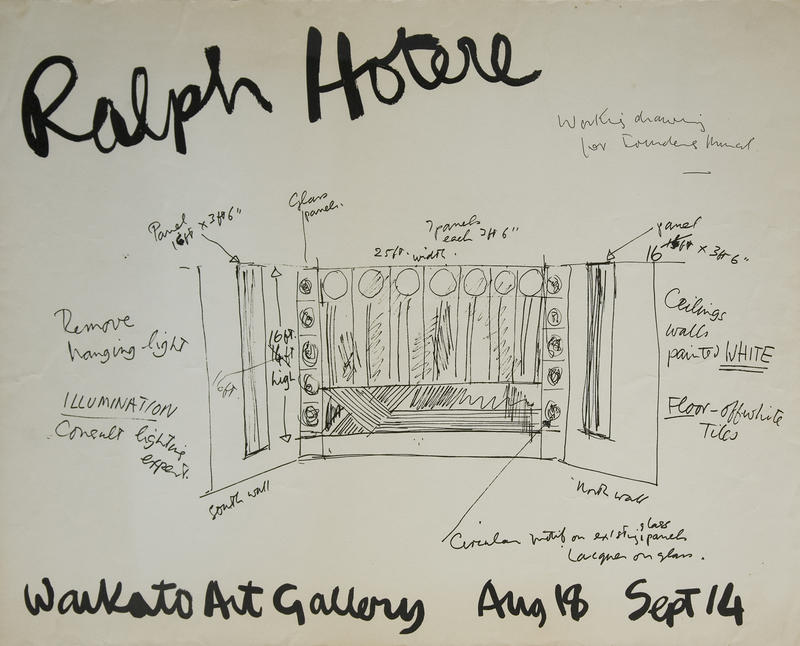 Ralph Hotere
Working drawing
for Founders Mural
Glass
panels.
Panel
16ft x 3ft 6"
7 panels
each 3ft 6"
25ft. width.
panel
16 x 3ft 6"
Remove
hanging-light
16ft.
14ft
high
16ft.
Ceilings
walls
painted WHITE
ILLUMINATION
Consult lighting
expert.
Floor-offwhite
Tiles
South wall
North wall
Circular motif on existing glass panels
Lacquer on glass.
Waikato Art Gallery Aug 18 Sept 14